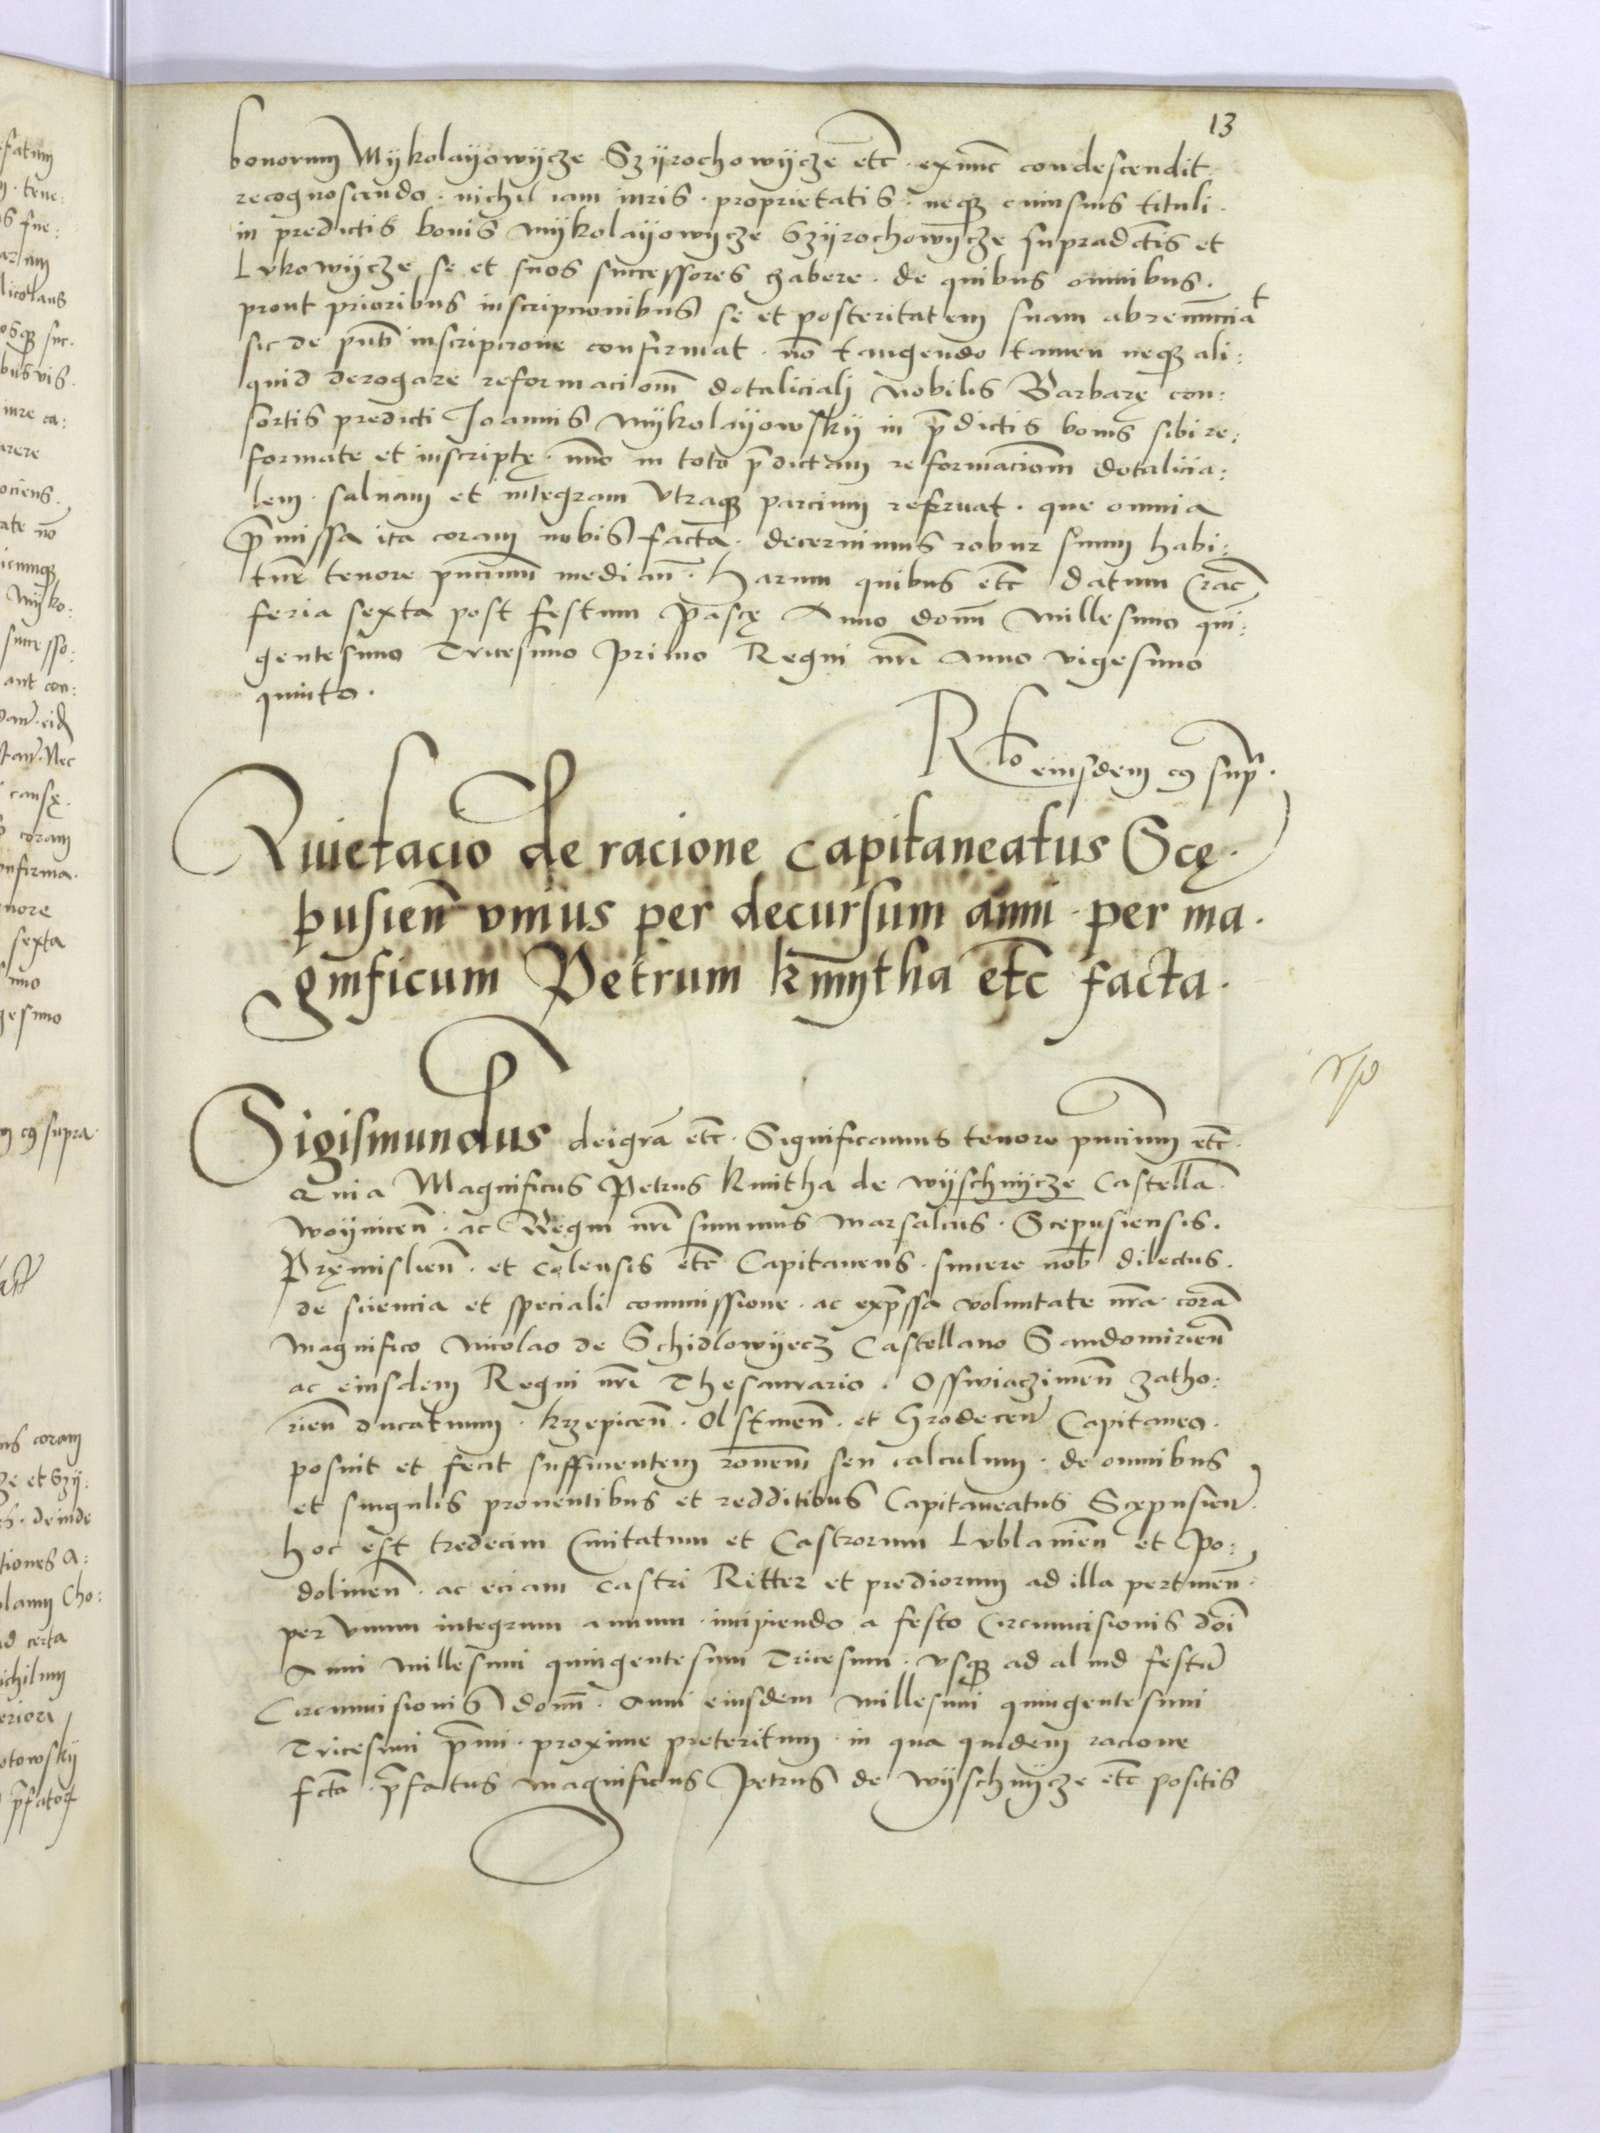 13
bonorum Mykolayowycze Szyrochowycze etc · exnunc condescendit ·
recognoscendo · nichil iam iuris · proprietatis · neq cuiusuis tituli ·
in predictis bonis Mykolayowycze Szyrochowycze supradctis et
Lukowycze se et suos successores habere · de quibus omnibus ·
prout prioribus inscripcionibus se et posteritatem suam abrenuncciat
sic de pnti inscripcione confirmat · no tangendo tamen neq ali:
quid derogare reformaciom dotaliciali Nobilis Barbarę con:
sortis predicti Joannis Mykolayowsky in pdictis bonis sibi re:
formate et inscriptę · imo in toto pdictam reformaciom dotalicia:
lem · saluam et integram vtraq parcium reseruat · que omnia
pmissa ita coram nobis facta · decernimus robur suum habi:
tur tenore pncium median · harum quibus etc datum Crac
feria sexta post festum Pascę Anno domi Millesimo qui:
gentesimo Tricesimo Primo Regni nri Anno vigesimo
quinto ·
Rlo eiusdem cuius supra ·
Quietacio de racione Capitaneatus Scę ·
pusien vnius per decursum anni · per ma ·
gnificum Petrum kmytha etc facta ·
Sigismundus dei gra etc · Significamus tenore pncium etc ·
Quia Magnificus Petrus Kmitha de wyschnycze Castella ·
woynicen · ac Regni nri summus Marsalcus · Scepusiensis ·
Pręmislien · et Colensis etc Capitaneus · sincere nob dilectus ·
de sciencia et speciali commissione · ac expssa voluntate nra cora
magnifico Nicolao de Schidlowyecz Castellano Sandomirien
ac eiusdem Regni nri Thesaurario · Osswiaczimen Zatho:
rien ducatuum · krzepicen · Olstinen · et Grodecen Capitaneo ·
posuit et fecit sufficientem ronem seu calculum · de omnibus
et singulis prouentibus et redditibus Capitaneatus Scępusien ·
hoc est tredecim Ciuitatum et Castrorum Lublauien et Po:
dolinen · ac eciam castri Ritter et prediorum ad illa pertinen ·
per vnum integrum annum · incipiendo a festo Circumcisionis doi
Anni Millesimi quingentesimi Tricesimi · vsq ad aliud festu
Circumcisionis domi · anni eiusdem Millesimi quingentesimi
Tricesimi pmi · proxime preteritum · in qua quidem racione
fcta · pfatus magnificus Petrus de wyschnycze etc positis